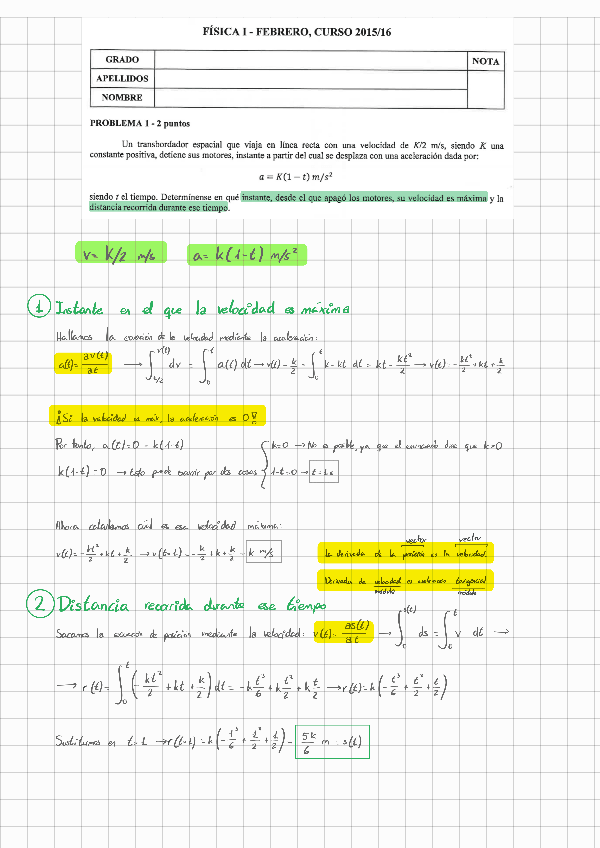 FÍSICA I - FEBRERO, CURSO 2015/16
GRADO
NOTA
APELLIDOS
NOMBRE
PROBLEMA 1 - 2 puntos
Un transbordador espacial que viaja en línea recta con una velocidad de K/2 m/s, siendo K una
constante positiva, detiene sus motores, instante a partir del cual se desplaza con una aceleración dada por:
a = K(1 − t) m/s²
siendo t el tiempo. Determínense en qué instante, desde el que apagó los motores, su velocidad es máxima y la
distancia recorrida durante ese tiempo.
v = k/2 m/s a = k(1-t) m/s²
1 Instante en el que la velocidad es máxima
Hallamos la ecuación de la velocidad mediante la aceleración:
a(t) = ∂v(t)/∂t → ∫_{k/2}^{v(t)} dv = ∫_0^t a(t) dt → v(t) - k/2 = ∫_0^t k - kt dt = kt - kt²/2 → v(t) = -kt²/2 + kt + k/2
¡Si la velocidad es máx, la aceleración es 0!
Por tanto, a(t) = 0 = k(1-t)
k(1-t) = 0 → Esto puede ocurrir por dos cosas
k=0 → No es posible, ya que el enunciado dice que k>0
1-t=0 → t=1s
Ahora calculamos cuál es esa velocidad máxima:
v(t) = -kt²/2 + kt + k/2 → v(t=1) = -k/2 + k + k/2 = k m/s
vector vector
La derivada de la posición es la velocidad.
Derivada de velocidad es aceleración tangencial
módulo módulo
2 Distancia recorrida durante ese tiempo
Sacamos la ecuación de posición mediante la velocidad: v(t) = ∂s(t)/∂t → ∫_0^{s(t)} ds = ∫_0^t v dt →
→ r(t) = ∫_0^t (-kt²/2 + kt + k/2) dt = -k t³/6 + k t²/2 + k t/2 → r(t) = k(-t³/6 + t²/2 + t/2)
Sustituimos en t=1 → r(t=1) = k(-1³/6 + 1²/2 + 1/2) = 5k/6 m = s(t)